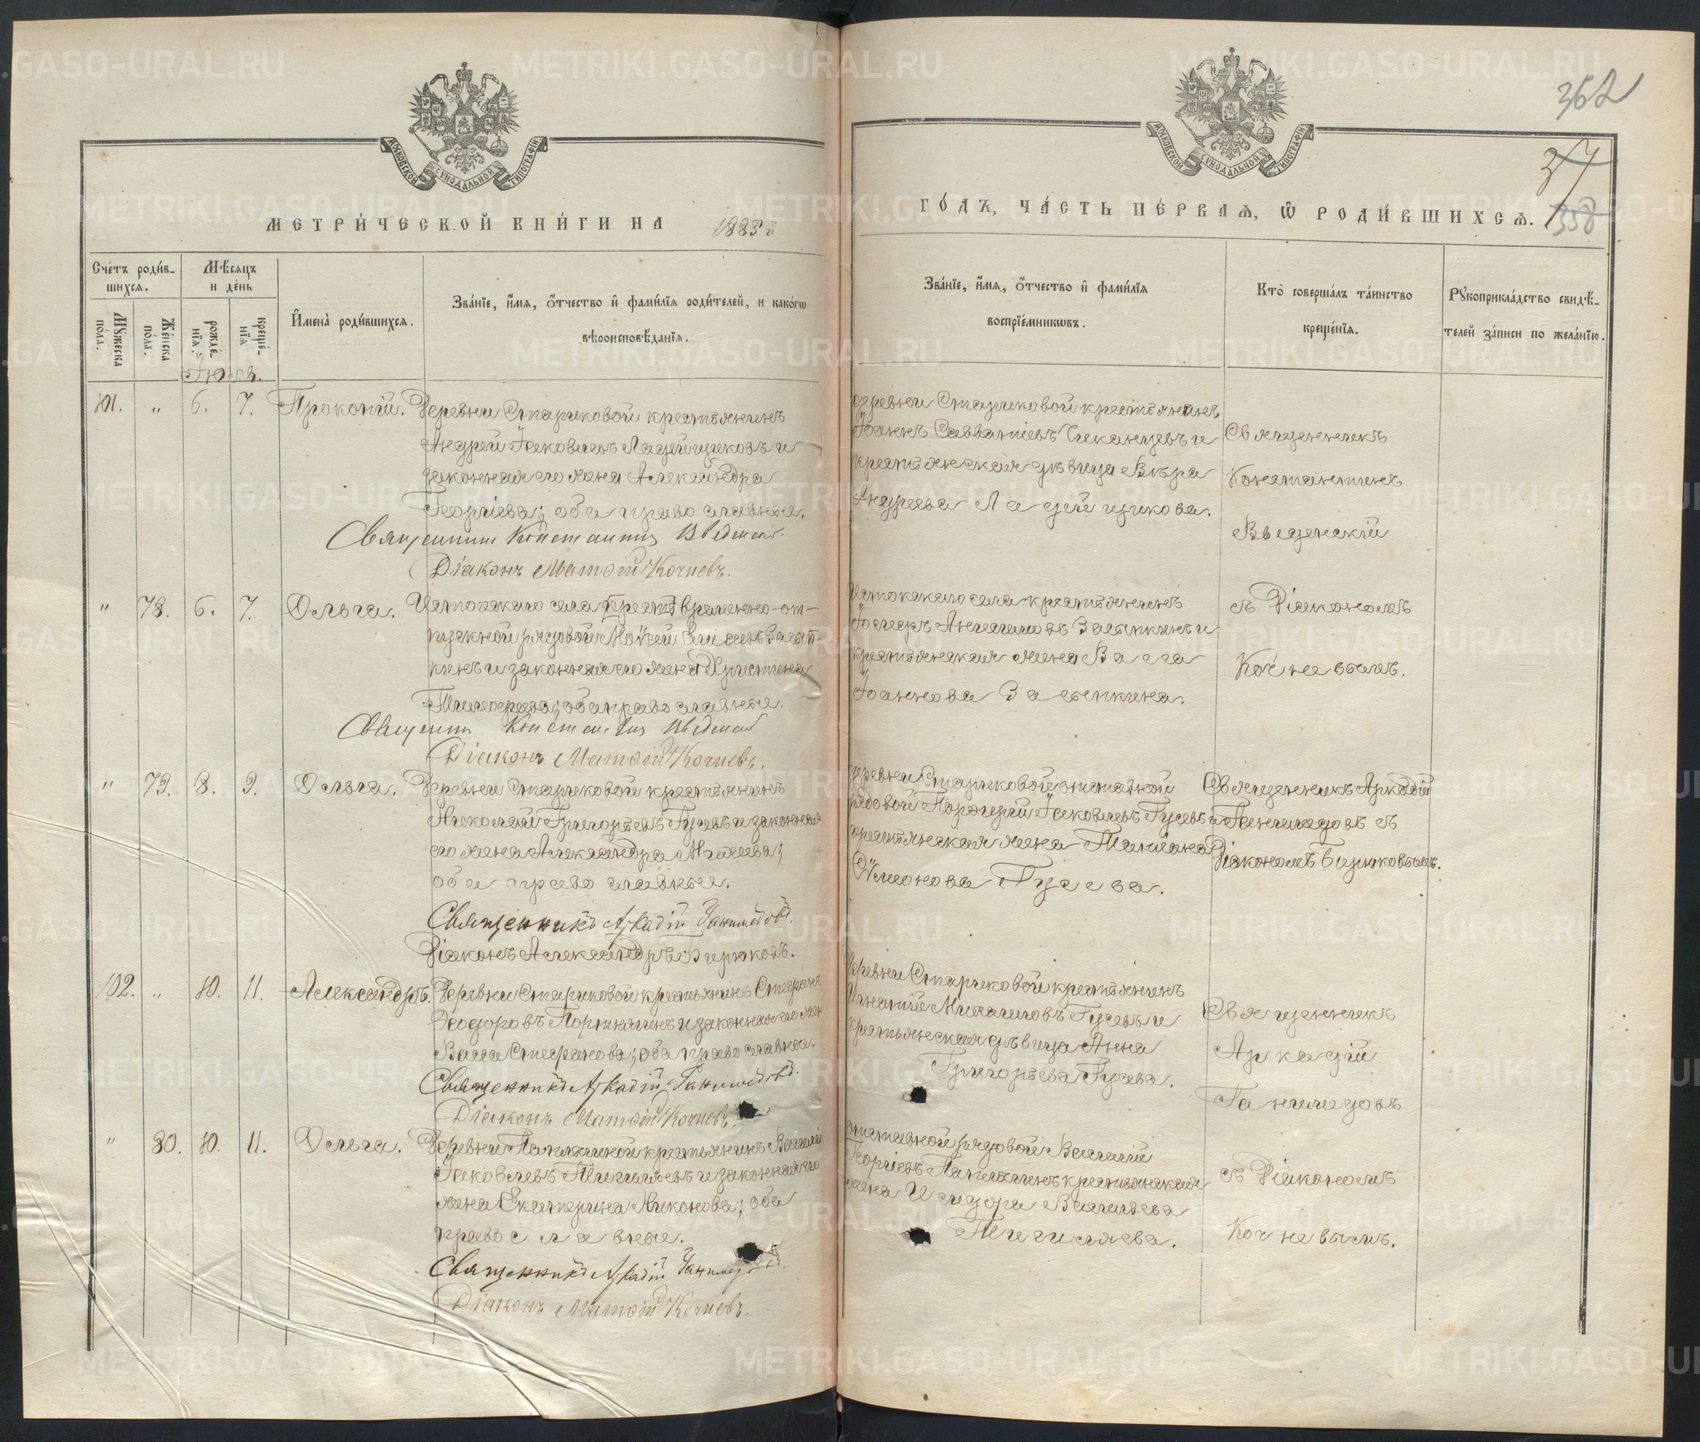 METRIKI.GASO-URAL.RU
362
37
358
МОСКОВСКОЙ СѴНОДАЛЬНОЙ ТИПОГРАФІИ
МЕТРИ́ЧЕСКОЙ КНИ́ГИ НА 1885 г
ГО́ДЪ, ЧА́СТЬ ПЕ́РВАЯ, Ѡ РОДИ́ВШИХСЯ.
Сче́тъ роди́в-
шихся.
Мѣ́сяцъ
и де́нь
Му́жеска по́ла.
Же́нска по́ла.
рожде́-
нїя.
креще́-
нїя
И҆мена̀ роди́вшихся.
Зва́нїе, и҆́мя, ѻ҆́тчество и҆ фами́лїя роди́телей, и како́гѡ
вѣроисповѣ́данїя.
Зва́нїе, и҆́мя, ѻ҆́тчество и҆ фами́лїя
воспрїе́мникѡвъ.
Кто̀ соверша́лъ та́инство
креще́нїя.
Рукоприкла́дство свидѣ́-
телей за́писи по жела́нїю.
Іюль.
101. „ 6. 7. Прокопій. Деревни Стариковой крестьянинъ
Андрей Іаковлевъ Ладейщиковъ и
законная его жена Александра
Георгіева; оба православные.
Священник Константин Введенск.
Діаконъ Матѳій Кочневъ.
деревни Стариковой крестьянинъ
Іоаннъ Савватіевъ Чеканцевъ и
крестьянская дѣвица Вѣра
Андреева Ладейщикова.
Священникъ
Константинъ
Введенскій
„ 78. 6. 7. Ольга. Истокскаго села крест. временно-от-
пускной рядовой
и законная его жена Христина
оба православные.
Священник Константин Введенск
Діаконъ Матѳій Кочневъ.
Истокскаго села крестьянинъ
Засыпкинъ и
крестьянская жена Васса
Іоаннова Засыпкина.
съ Діакономъ
Кочневымъ.
„ 79. 8. 9. Ольга. Деревни Стариковой крестьянинъ
Николай Григорьевъ Гусевъ и законная
его жена Александра Матѳеева;
оба православные.
Священникъ Аркадій Ганимедовъ.
Діаконъ Александръ Бирюковъ.
деревни Стариковой отставной
рядовой Порфирій Іаковлевъ Гусевъ и
крестьянская жена Татіана
Филимонова Гусева.
Священникъ Аркадій
Ганимедовъ съ
Діакономъ Бирюковымъ.
102. „ 10. 11. Александръ. Деревни Стариковой крестьянинъ Стефанъ
Ѳеодоровъ Портнягинъ и законная его жен
Васса Стефанова; оба православные.
Священникъ Аркадій Ганимедовъ.
Діаконъ Матѳій Кочневъ.
Деревни Стариковой крестьянинъ
Игнатій Михаиловъ Гусевъ и
крестьянская дѣвица Анна
Григорьева Гусева.
Священникъ
Аркадій
Ганимедовъ
„ 80. 10. 11. Ольга. Деревни крестьянинъ Василій
Іаковлевъ и законная его
жена Екатерина Никонова; оба
православные.
Священникъ Аркадій Ганимедовъ.
Діаконъ Матѳій Кочневъ.
отставной рядовой Василій
Георгіевъ крестьянская
жена Исидора Васильева
съ Діакономъ
Кочневымъ.